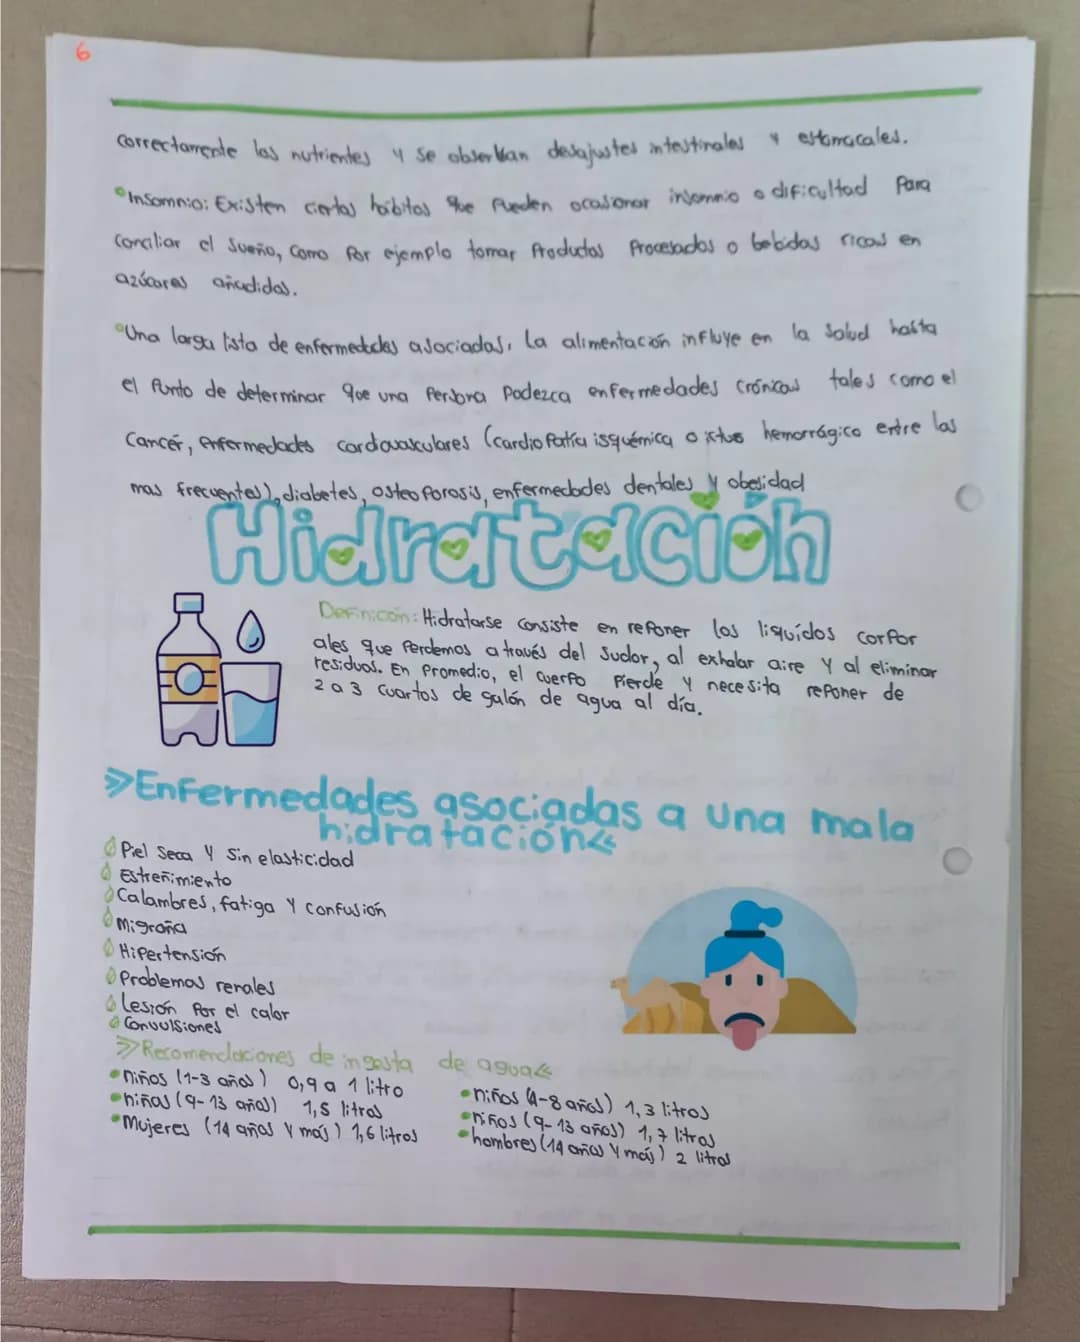 6
correctamente los nutrientes y se observan desajustes intestinales y estomacales.
Insomnio: Existen ciertos hábitos que pueden ocasionar insomnio o dificultad para
conciliar el sueño, como por ejemplo tomar productos procesados o bebidas ricas en
azúcares añadidas.
Una larga lista de enfermedades asociadas. La alimentación influye en la salud hasta
el punto de determinar que una persona padezca enfermedades crónicas tales como el
cancér, enfermedades cardiovasculares (cardiopatía isquémica o ictus hemorrágico entre las
mas frecuentes), diabetes, osteoporosis, enfermedades dentales y obesidad
Hidratación
Definicón: Hidratarse consiste en reponer los liquídos corpor
ales que perdemos através del sudor, al exhalar aire y al eliminar
residuos. En promedio, el cuerpo pierde y necesita reponer de
2 a 3 cuartos de galón de agua al día.
»Enfermedades asociadas a una mala
hidratación«
Piel seca y sin elasticidad
Estreñimiento
Calambres, fatiga y confusión
Migraña
Hipertensión
Problemas renales
Lesión por el calor
Convulsiones
»Recomendaciones de ingesta de agua«
•niños (1-3 años) 0,9 a 1 litro •niños (4-8 años) 1,3 litros
•niñas (9-13 años) 1,5 litros •niños (9-13 años) 1,7 litros
•Mujeres (14 años y más) 1,6 litros •hombres (14 años y más) 2 litros